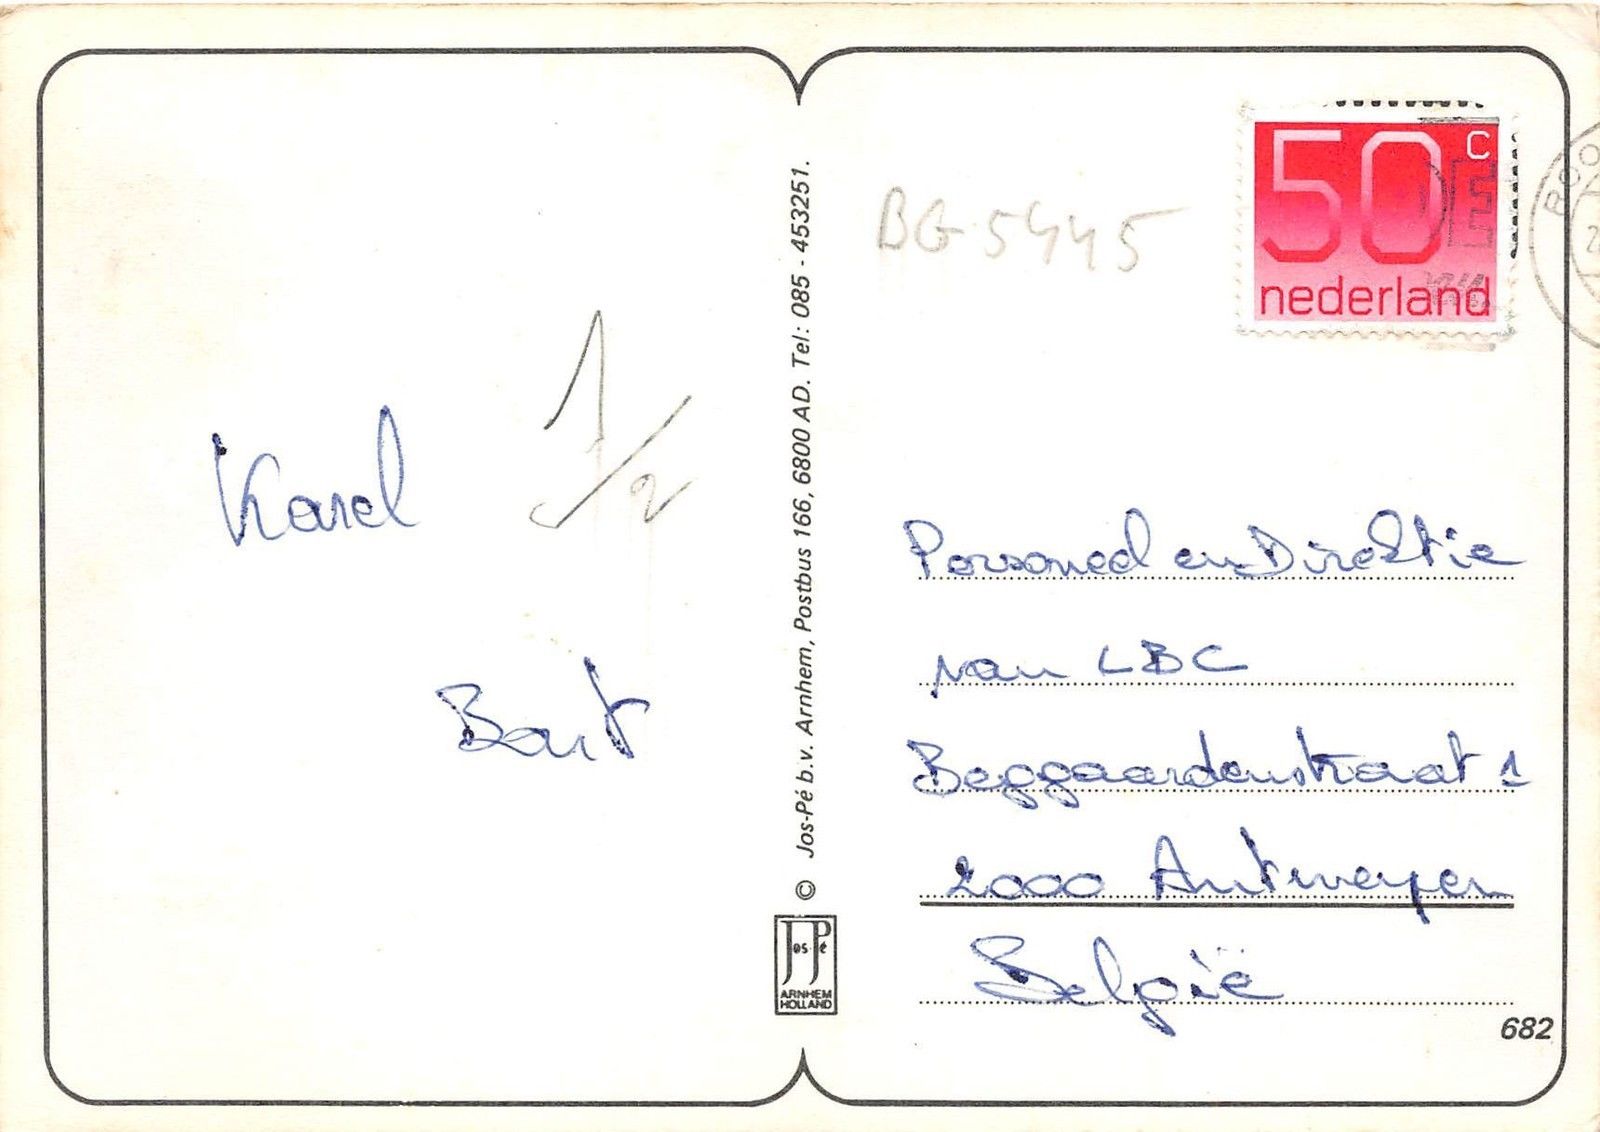 Karel
1/2
Bart
© Jos-Pé b.v. Arnhem, Postbus 166, 6800 AD. Tel: 085 - 453251.
Jos Pé
ARNHEM
HOLLAND
BG 5445
50 C
nederland
Personeel en Direktie
van LBC
Beggaardenstraat 1
2000 Antwerpen
België
682